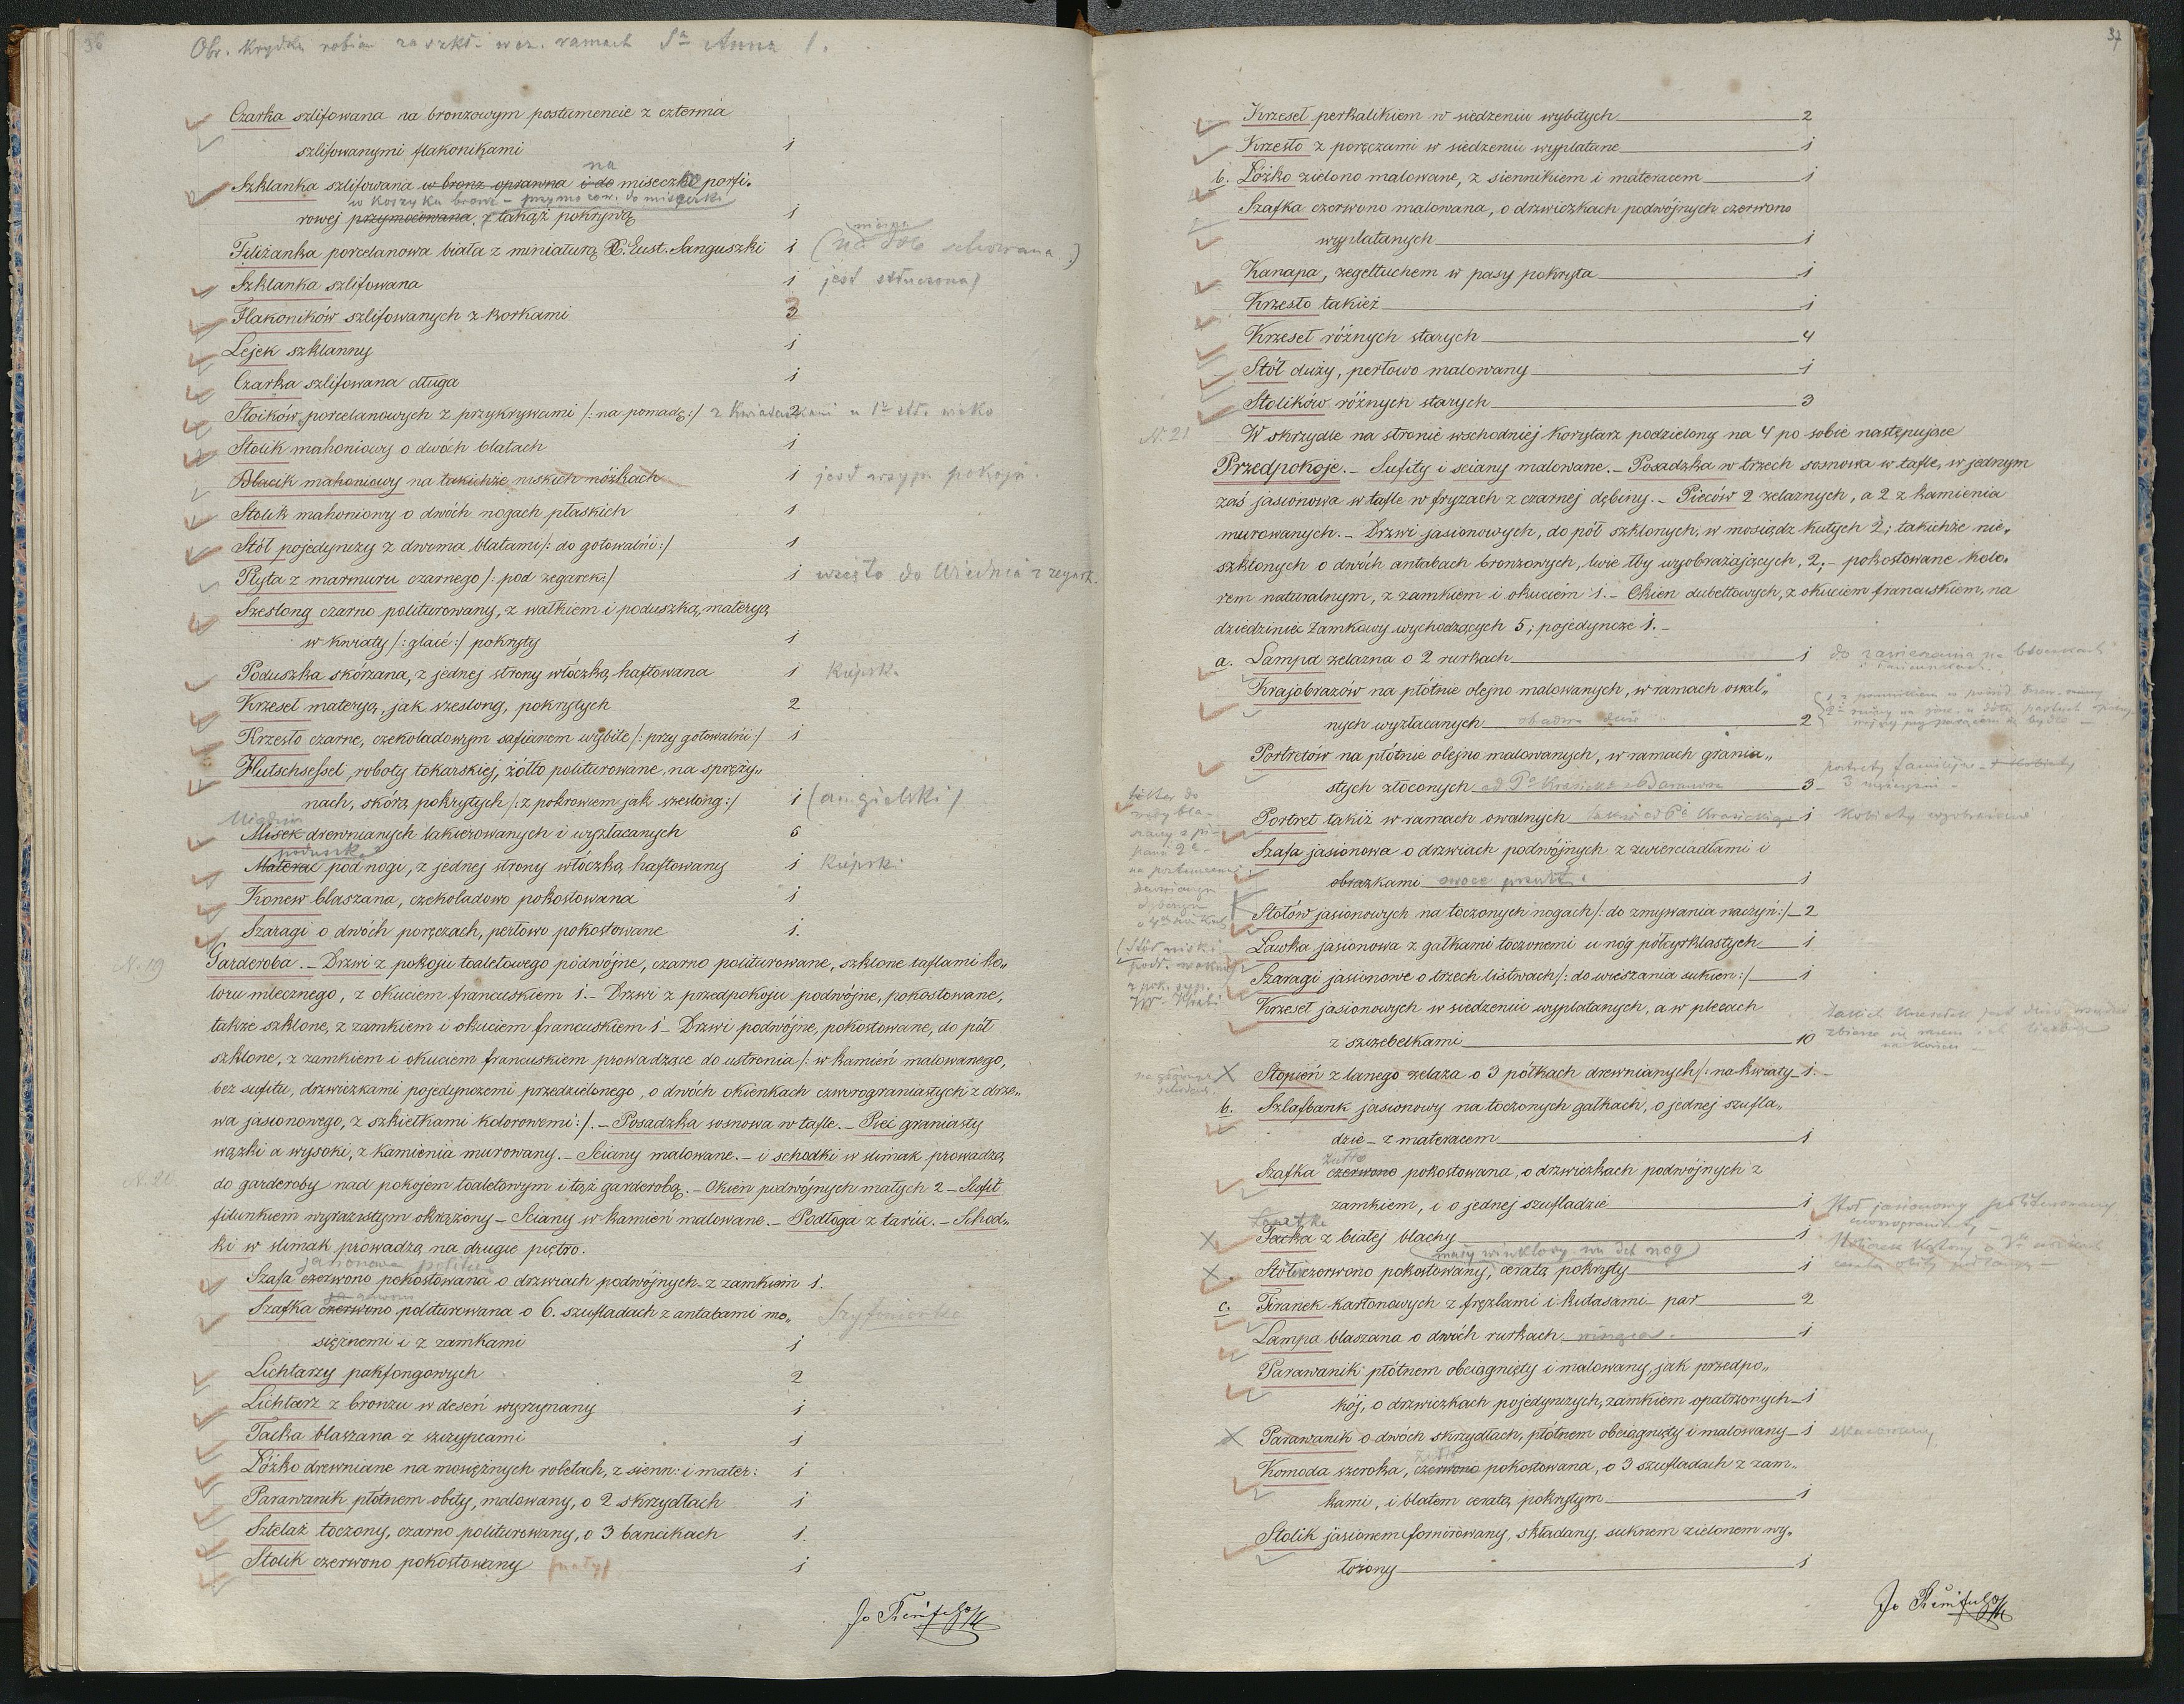 36
Obr. krydką robion za szkł. w cz. ramach Sa Anna 1.
Czarka szlifowana na bronzowym postumencie z czterma
szlifowanymi flakonikami 1
na
Szklanka szlifowana w bronz oprawna i do miseczki porfi„
w koszyku bronz - przymocow. do miseczki
rowej przymocowana, z takąż pokrywą 1
Filiżanka porcelanowa biała z miniaturą X. Eust. Sanguszki 1 (na dole schowana)
Szklanka szlifowana 1 jest stłuczona)
Flakoników szlifowanych z korkami 3
Lejek szklanny 1
Czarka szlifowana długa 1
Słoików porcelanowych z przykrywami /: na pomadę :/ z kwiateczkami u 1º stł. wieko 2
Stolik mahoniowy o dwóch blatach 1
Blacik mahoniowy na takichże niskich nóżkach 1 jest w syp. pokoju.
Stolik mahoniowy o dwóch nogach płaskich 1
Stół pojedynczy z dwoma blatami /: do gotowalni :/ 1
Płyta z marmuru czarnego /: pod zegarek :/ 1 wzięto do Wiednia z zegark.
Szeslong czarno politurowany, z wałkiem i poduszką, materyą
w kwiaty /: glacé :/ pokryty 1
Poduszka skórzana, z jednej strony włóczką haftowana 1 Kúpsk.
Krzeseł materyą, jak szeslong, pokrytych 2
Krzesło czarne, czekoladowym safianem wybite /: przy gotowalni :/ 1
Hutschsessel, roboty tokarskiej, żółto politurowane, na spręży„
nach, skórą pokrytych /: z pokrowcem jak szeslong :/ 1 (angielski)
Misek drewnianych lakierowanych i wyzłacanych 6
poduszka
Materac pod nogi, z jednej strony włóczką haftowany 1 Kúpsk.
Konew blaszana, czekoladowo pokostowana 1
Szaragi o dwóch poręczach, perłowo pokostowane 1.
N. 19 Garderoba. - Drzwi z pokoju toaletowego podwójne, czarno politurowane, szklone taflami ko„
loru mlecznego, z okuciem francuskiem 1. - Drzwi z przedpokoju podwójne, pokostowane,
także szklone, z zamkiem i okuciem francuskiem 1 - Drzwi podwójne, pokostowane, do pół
szklone, z zamkiem i okuciem francuskiem prowadzące do ustronia /: w kamień malowanego,
bez sufitu, drzwiczkami pojedynczemi przedzielonego, o dwóch okienkach czworograniastych z drze„
wa jasionowego, z szkiełkami kolorowemi :/. - Posadzka sosnowa w tafle. - Piec graniasty
wązki a wysoki, z kamienia murowany. - Sciany malowane. - i schodki w slimak prowadzą
N. 20 do garderoby nad pokojem toaletowym i tąż garderobą. - Okien podwójnych małych 2 - Sufit
filunkiem wyrazistym okrążony - Sciany w kamień malowane. - Podłoga z tarcic. - Schod„
ki w slimak prowadzą na drugie piętro.
jasionowa politur
Szafa czerwono pokostowana o drzwiach podwójnych z zamkiem 1.
Szafka czerwono politurowana o 6. szufladach z antabami mo„ Szyfonierka
siężnemi i z zamkami 1
Lichtarzy pakfongowych 2
Lichtarz z bronzu w deseń wyrzynany 1
Tacka blaszana z szczypcami 1
Łóżko drewniane na mosiężnych roletach, z sienn: i mater: 1
Parawanik płótnem obity, malowany, o 2 skrzydłach 1
Sztelaż toczony, czarno politurowany, o 3 bancikach 1.
Stolik czerwono pokostowany (mały) 1
37
Krzeseł perkalikiem w siedzeniu wybitych 2
Krzesło z poręczami w siedzeniu wyplatane 1
b. Łóżko zielono malowane, z siennikiem i materacem 1
Szafka czerwono malowana, o drzwiczkach podwójnych czerwono
wyplatanych 1
Kanapa, żegeltuchem w pasy pokryta 1
Krzesło takież 1
Krzeseł różnych starych 4
Stół duży, perłowo malowany 1
Stolików różnych starych 3
N. 21 W skrzydle na stronie wschodniej korytarz podzielony na 4 po sobie następujące
Przedpokoje. - Sufity i sciany malowane. - Posadzka w trzech sosnowa w tafle, w jednym
zaś jasionowa w tafle w fryzach z czarnej dębiny. - Pieców 2 żelaznych, a 2 z kamienia
murowanych. - Drzwi jasionowych, do pół szklonych, w mosiądz kutych 2; takichże nie„
szklonych o dwóch antabach bronzowych, lwie łby wyobrażających, 2, - pokostowane kolo„
rem naturalnym, z zamkiem i okuciem 1. - Okien dubeltowych, z okuciem francuskiem, na
dziedziniec Zamkowy wychodzących 5; pojedyncze 1. -
a. Lampa żelazna o 2 rurkach 1 do zawieszania na bloczkach
Krajobrazów na płótnie olejno malowanych, w ramach owal„
nych wyzłacanych obadwa duże 2
Portretów na płótnie olejno malowanych, w ramach grania„
stych złoconych od Pª Krasickª z Baranowa 3 portrety familijne - 3 mężczyzni
Portret takiż w ramach owalnych także od Pª Krasickiego 1 kobiety wyobrażenie
Szafa jasionowa o drzwiach podwójnych z zwierciadłami i
obrazkami owoce przedst. 1
Stołów jasionowych na toczonych nogach /: do zmywania naczyń :/ 2
Ławka jasionowa z gałkami toczonemi u nóg półcyrklastych 1
Szaragi jasionowe o trzech listwach /: do wieszania sukien :/ 1
Krzeseł jasionowych w siedzeniu wyplatanych, a w plecach
z szczebelkami 10
Stopień z lanego żelaza o 3 półkach drewnianych /: na kwiaty 1. -
b. Szlafbank jasionowy na toczonych gałkach, o jednej szufla„
dzie - z materacem 1
żółto
Szafka czerwono pokostowana, o drzwiczkach podwójnych z
zamkiem, i o jednej szufladzie 1 Stół jasionowy politurowany
Łopatka
Tacka z białej blachy 1
mały winklowy na 3ch nog
Stół czerwono pokostowany, ceratą pokryty 1
c. Firanek kartonowych z fręzlami i kutasami - par 2
Lampa blaszana o dwóch rurkach wisząca. 1
Parawanik płótnem obciągnięty i malowany, jak przedpo„
kój, o drzwiczkach pojedynczych, zamkiem opatrzonych 1
Parawanik o dwóch skrzydłach, płótnem obciągnięty i malowany 1 skasowany
żółto
Komoda szeroka, czerwono pokostowana, o 3 szufladach z zam„
kami, i blatem ceratą pokrytym 1
Stolik jasionem fornirowany, składany, suknem zielonem wy„
łożony 1